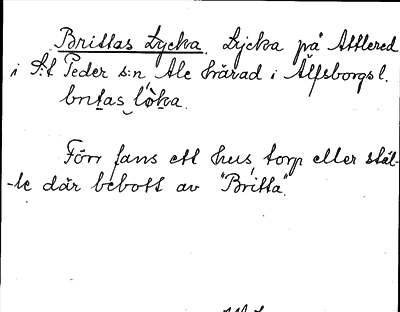 Brittas Lycka. Lycka på Attlered
i S:t Peder s:n, Ale härad i Älfsborgs l.
britas lø̀ka.
Förr fans ett hus, torp eller stäl-
-le där bebott av "Britta".